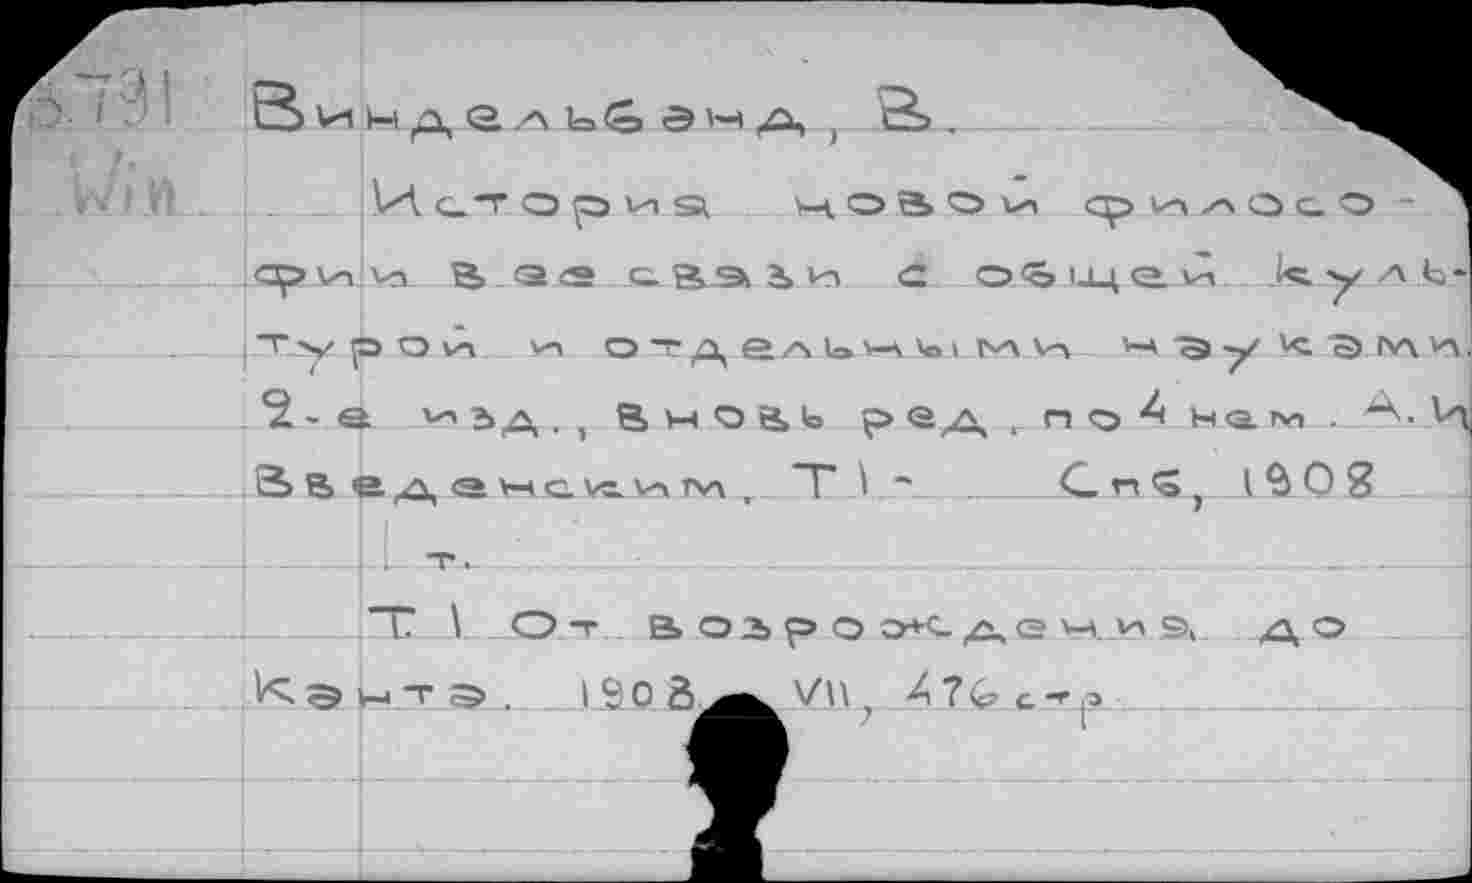 Б.791 Виндельбанд, В.
Win История новой филосо-
фии в ее связи с общей куль-
турой и отдельными науками.
2-е изд., вновь ред. по 4 нем. А. И
Введенским. Т 1 - Спб, 1908
1 т.
Т. 1 От возрождения до
Канта. 1908. VII, 476 стр